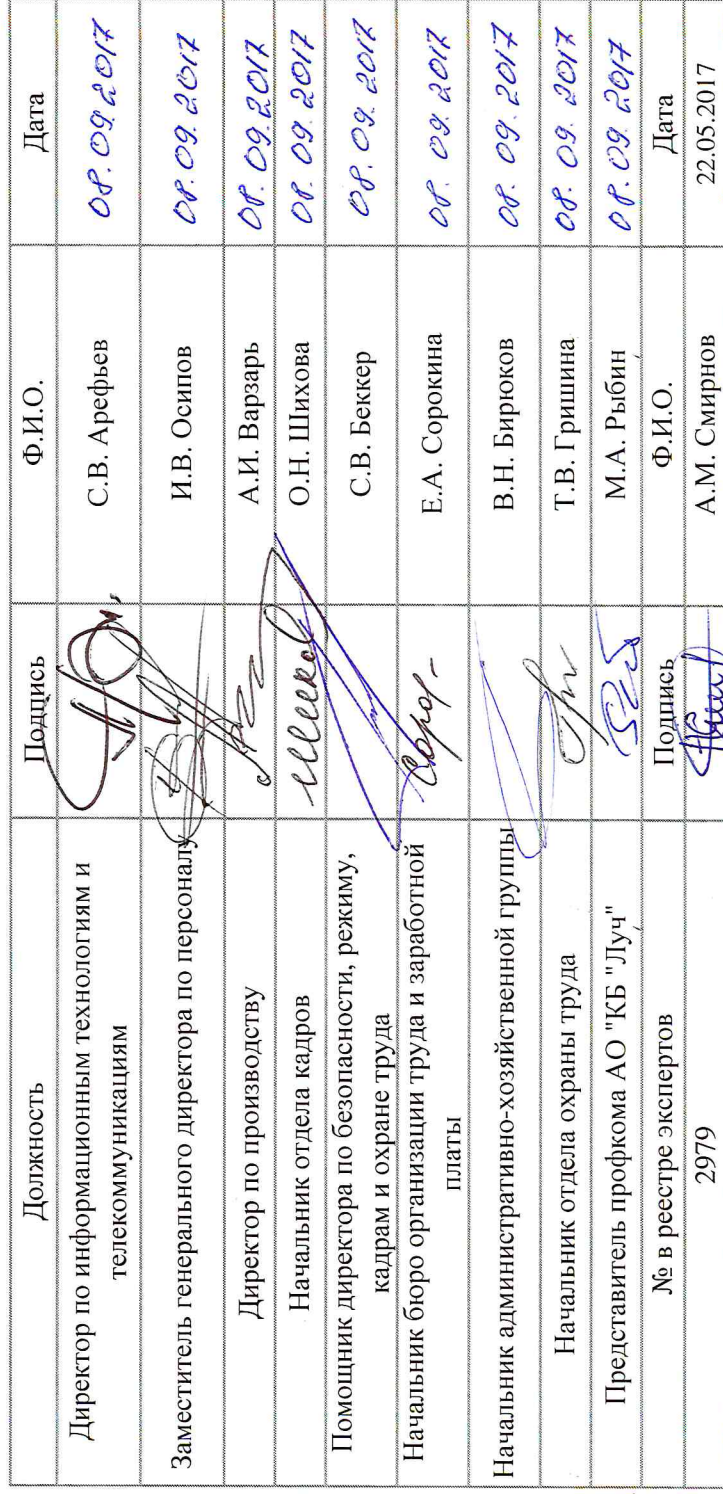 Должность Подпись Ф.И.О. Дата
Директор по информационным технологиям и
телекоммуникациям С.В. Арефьев 08.09.2017
Заместитель генерального директора по персоналу И.В. Осипов 08.09.2017
Директор по производству А.И. Варзарь 08.09.2017
Начальник отдела кадров О.Н. Шихова 08.09.2017
Помощник директора по безопасности, режиму,
кадрам и охране труда С.В. Беккер 08.09.2017
Начальник бюро организации труда и заработной
платы Е.А. Сорокина 08.09.2017
Начальник административно-хозяйственной группы В.Н. Бирюков 08.09.2017
Начальник отдела охраны труда Т.В. Гришина 08.09.2017
Представитель профкома АО "КБ "Луч" М.А. Рыбин 08.09.2017
№ в реестре экспертов Подпись Ф.И.О. Дата
2979 А.М. Смирнов 22.05.2017